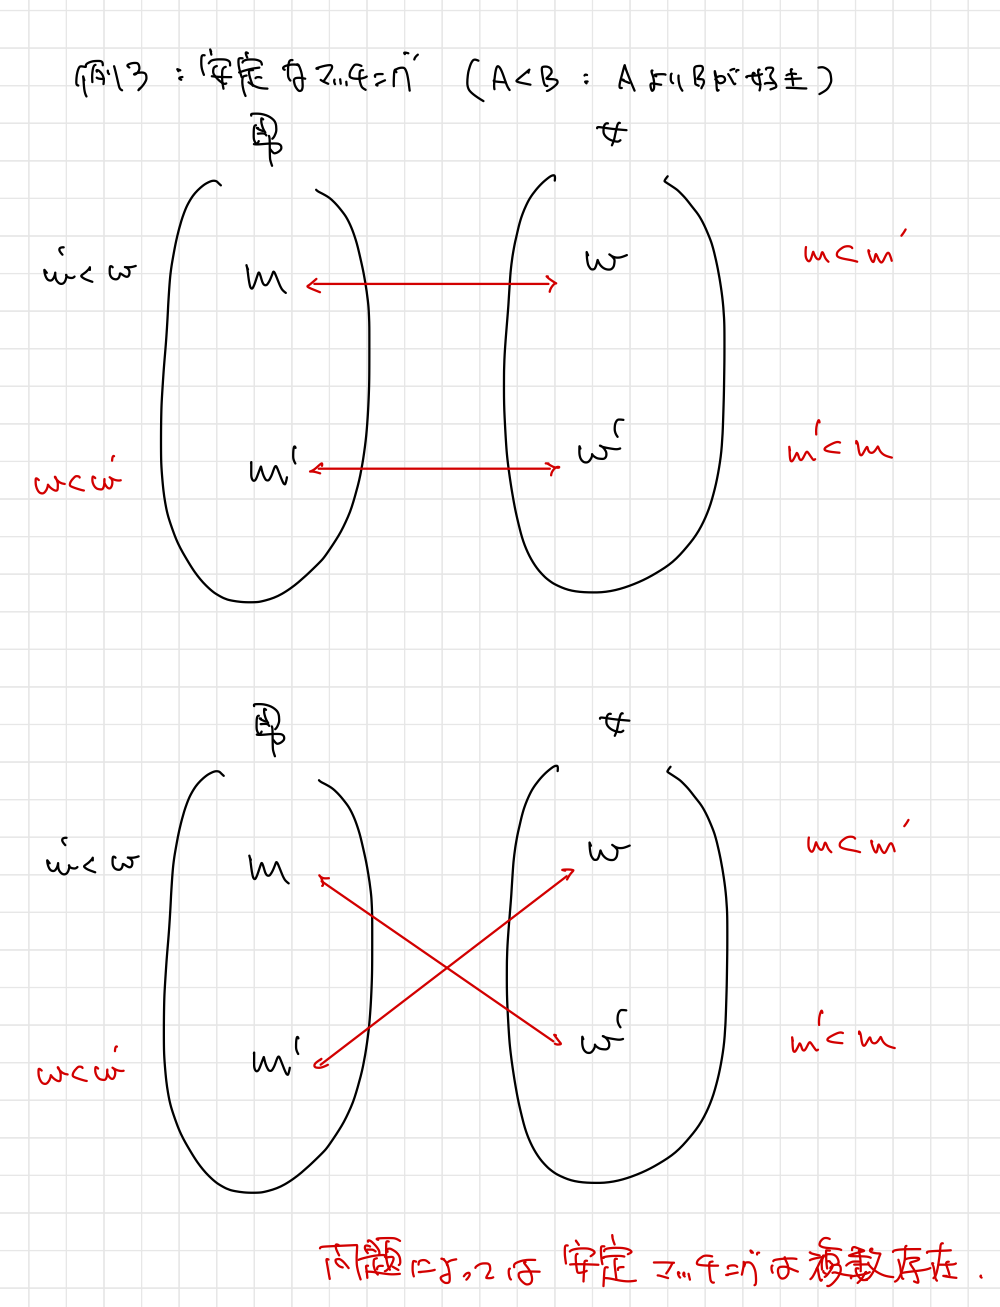 例3：安定なマッチング （A<B：AよりBが好き）
男 女
w'<w m w m<m'
w<w' m' w' m'<m
男 女
w'<w m w m<m'
w<w' m' w' m'<m
問題によっては安定マッチングは複数存在．